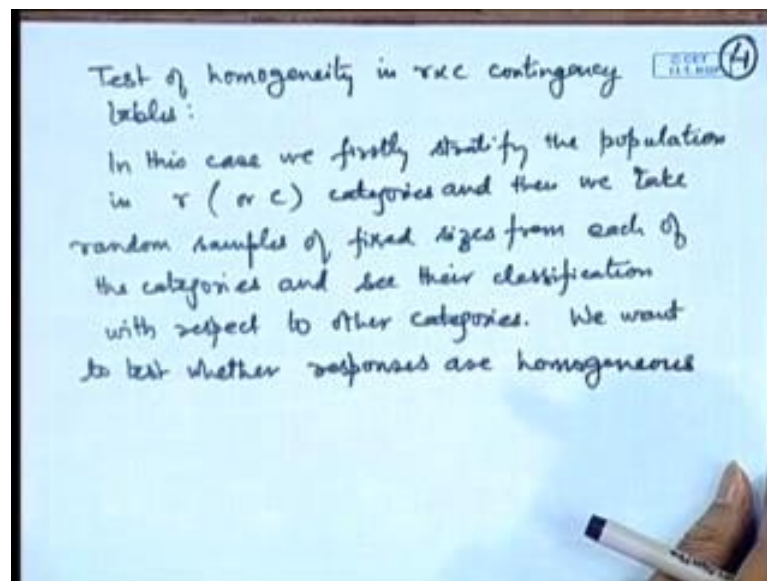 Test of homogeneity in r×c contingency
tables:
In this case we firstly stratify the population
in r (or c) categories and then we take
random samples of fixed sizes from each of
the categories and see their classification
with respect to other categories. We want
to test whether responses are homogeneous
14